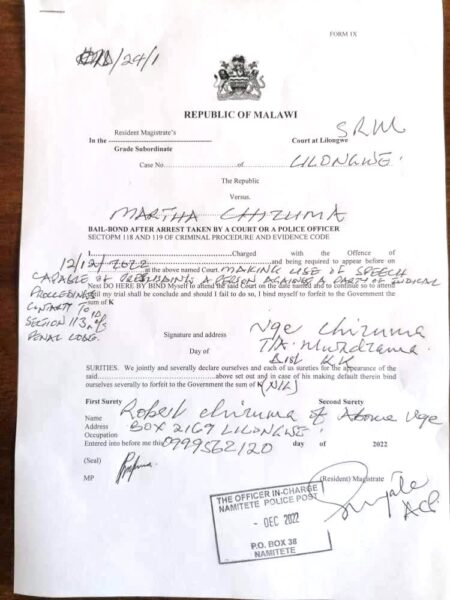 FORM IX
/24/1
REPUBLIC OF MALAWI
Resident Magistrate's SRM
In the ------------------------------- Court at Lilongwe
Grade Subordinate
Case No.................................of LILONGWE.
The Republic
Versus.
MARTHA CHIZUMA
BAIL-BOND AFTER ARREST TAKEN BY A COURT OR A POLICE OFFICER
SECTOPM 118 AND 119 OF CRIMINAL PROCEDURE AND EVIDENCE CODE
I..........................................Charged with the Offence of
12/12/2022..........................and being required to appear before on
..........at the above named Court. MAKING USE OF SPEECH
CAPABLE OF A PERSON AGAINST A PARTY OF
Next DO HERE BY BIND Myself to attend the said Court on the date named and to continue so to attend
PROCEEDINGS till my trial shall be conclude and should I fail to do so, I bind myself to forfeit to the Government the
CONTRARY TO sum of K
SECTION 113
PENAL CODE.
Vge Chizuma
Signature and address T/A
Day of Dist KK
SURETIES. We jointly and severally declare ourselves and each of us sureties for the appearance of the
said..................................above set out and in case of his making default therein bind
ourselves severally to forfeit to the Government the sum of K(NIL)
First Surety Second Surety
Name Robert Chizuma of Above Vge
Address BOX 2169 LILONGWE.
Occupation
Entered into before me this 0999562120 day of 2022
(Seal) (Resident) Magistrate
MP
ACP
THE OFFICER IN-CHARGE
NAMITETE POLICE POST
- DEC 2022
P.O. BOX 38
NAMITETE